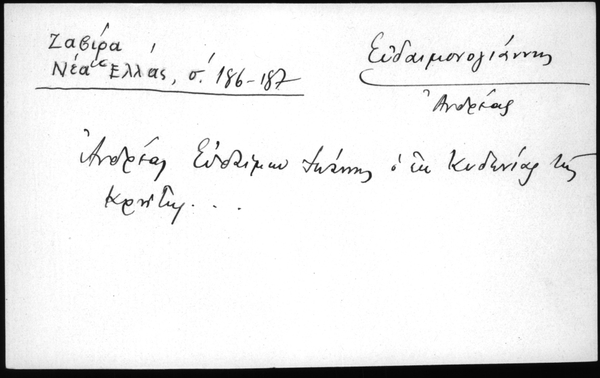 Ζαβίρα
Νέα Ἑλλάς, σ. 186-187
Εὐδαιμονογιάννης
Ἀνδρέας
Ἀνδρέας Εὐδαίμων Ἰωάννης ὁ ἐκ Κυδωνίας τῆς
Κρήτης...